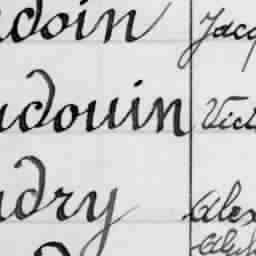 udoin Jacq
udouin Vict
udry Alex